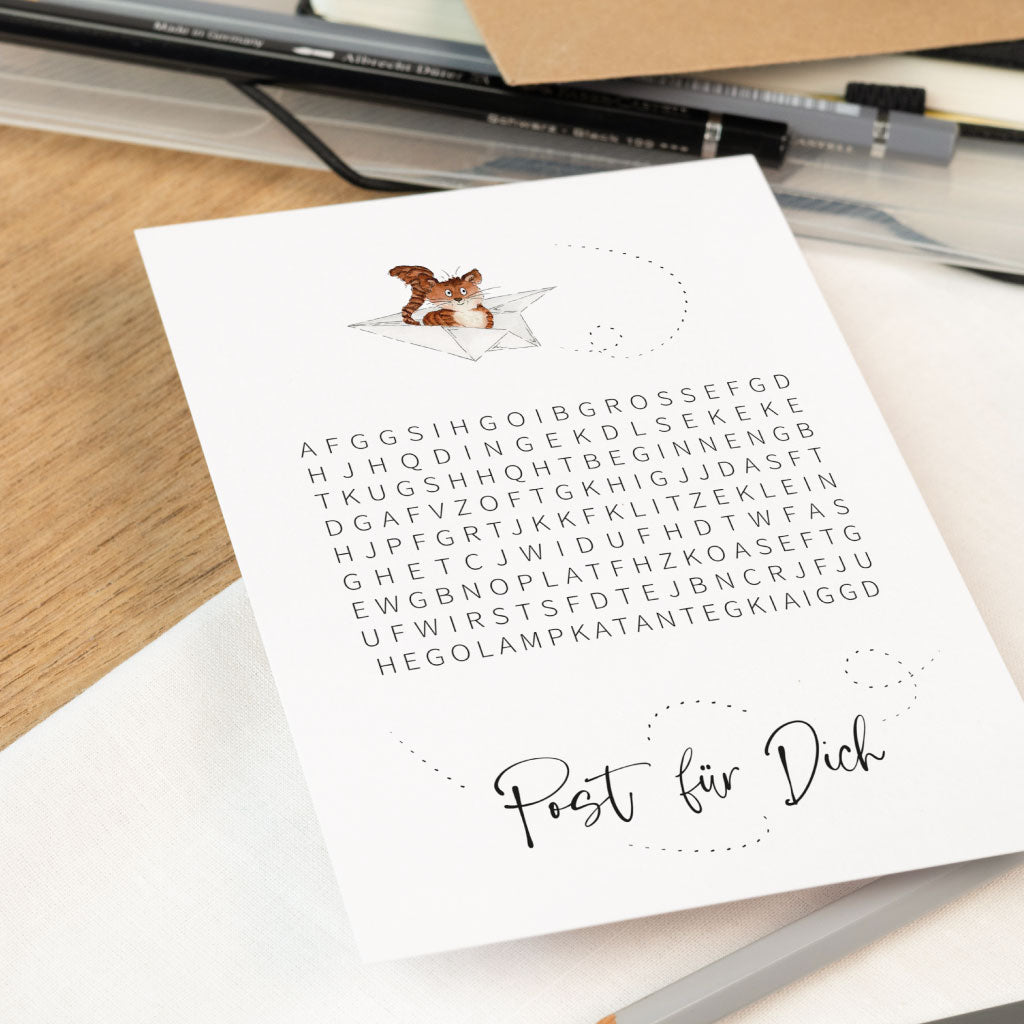 Made in Germany Albrecht Dürer
Schwarz · Black 199 ***
ASTELL
AFGGSIHGOIBGROSSEFGD
HJHQDINGEKDLSEKEKE
TKUGSHHQHTBEGINNENGB
DGAFVZOFTGKHIGJJDASFT
HJPFGRTJKKFKLITZEKLEIN
GHETCJWIDUFHDTWFAS
EWGBNOPLATFHZKOASEFTG
UFWIRSTSFDTEJBNCRJFJU
HEGOLAMPKATANTEGKIAIGGD
Post für Dich